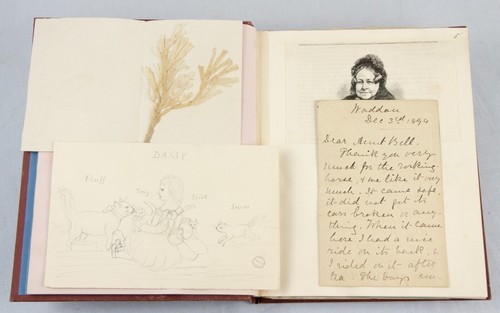 DAISY
Fluff
Tiny
Waddon
Dec 3rd 1894
Dear Aunt Bell.
Thank you very
much for the rocking
horse, & we like it very
much. It came safe.
it did not get its
ears broken or any-
thing. When it came
here I had a nice
ride on its back, &
I rided on it after
tea. The boys are
5